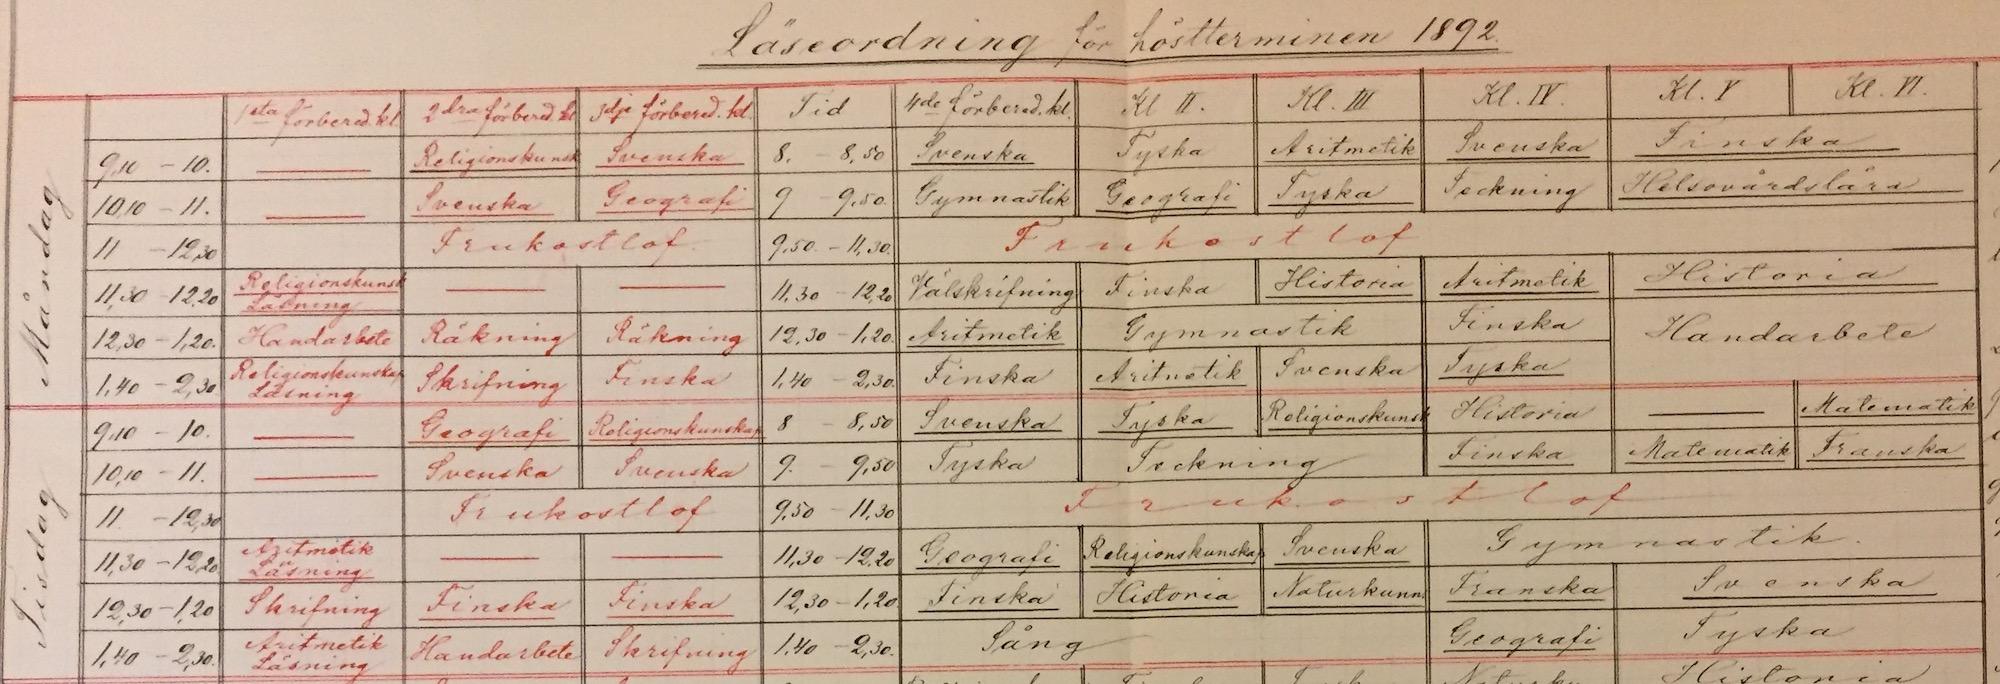 Läseordning för höstterminen 1892.
1sta förbered. kl. 2dra förbered. kl 3dje förbered. kl. Tid 4de förbered. kl. Kl II. Kl. III Kl. IV. Kl. V Kl. VI.
Måndag
9,10 – 10. — Religionskunsk Svenska 8. – 8,50 Svenska Tyska Aritmetik Svenska Finska
10,10 – 11. — Svenska Geografi 9 – 9,50. Gymnastik Geografi Tyska Teckning Helsovårdslära
11 – 12,30 Frukostlof. 9,50. – 11,30. Frukostlof
11,30 – 12,20 Religionskunsk Läsning — — 11,30 – 12,20 Välskrifning Finska Historia Aritmetik Historia
12,30 – 1,20. Handarbete Räkning Räkning 12,30 – 1,20. Aritmetik Gymnastik Finska Handarbete
1,40 – 2,30 Religionskunskap Läsning Skrifning Finska 1,40 – 2,30. Finska Aritmetik Svenska Tyska
Tisdag
9,10 – 10. — Geografi Religionskunskap 8 – 8,50 Svenska Tyska Religionskunsk Historia — Matematik
10,10 – 11. — Svenska Svenska 9. – 9,50 Tyska Teckning Finska Matematik Franska
11. – 12,30 Frukostlof 9,50 – 11,30 Frukostlof
11,30 – 12,20 Aritmetik Läsning — — 11,30 – 12,20 Geografi Religionskunskap Svenska Gymnastik.
12,30 – 1,20 Skrifning Finska Finska 12,30 – 1,20. Finska Historia Naturkunn. Franska Svenska
1,40 – 2,30. Aritmetik Läsning Handarbete Skrifning 1,40 – 2,30. Sång Geografi Tyska
Historia